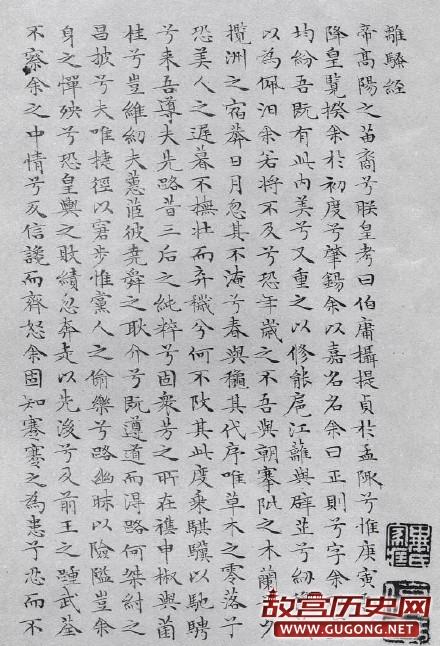 離騷經
帝高陽之苗裔兮朕皇考曰伯庸攝提貞於孟陬兮惟庚寅
降皇覽揆余於初度兮肇錫余以嘉名名余曰正則兮字余
均紛吾既有此內美兮又重之以修能扈江蘺與辟芷兮紉
以為佩汩余若將不及兮恐年歲之不吾與朝搴阰之木蘭夕
攬洲之宿莽日月忽其不淹兮春與穐其代序唯草木之零落兮
恐美人之遲暮不撫壯而弃穢兮何不改其此度乘騏驥以馳騁
兮来吾導夫先路昔三后之純粹兮固衆芳之所在襍申椒與菌
桂兮豈維紉夫蕙茝彼堯舜之耿介兮既遵道而得路何桀紂之
昌披兮夫唯捷徑以窘步惟黨人之偷樂兮路幽昧以險隘豈余
身之憚殃兮恐皇輿之敗績忽奔走以先後兮及前王之踵武荃
不察余之中情兮反信讒而齊怒余固知謇謇之為患兮忍而不
故宫历史网
WWW.GUGONG.NET